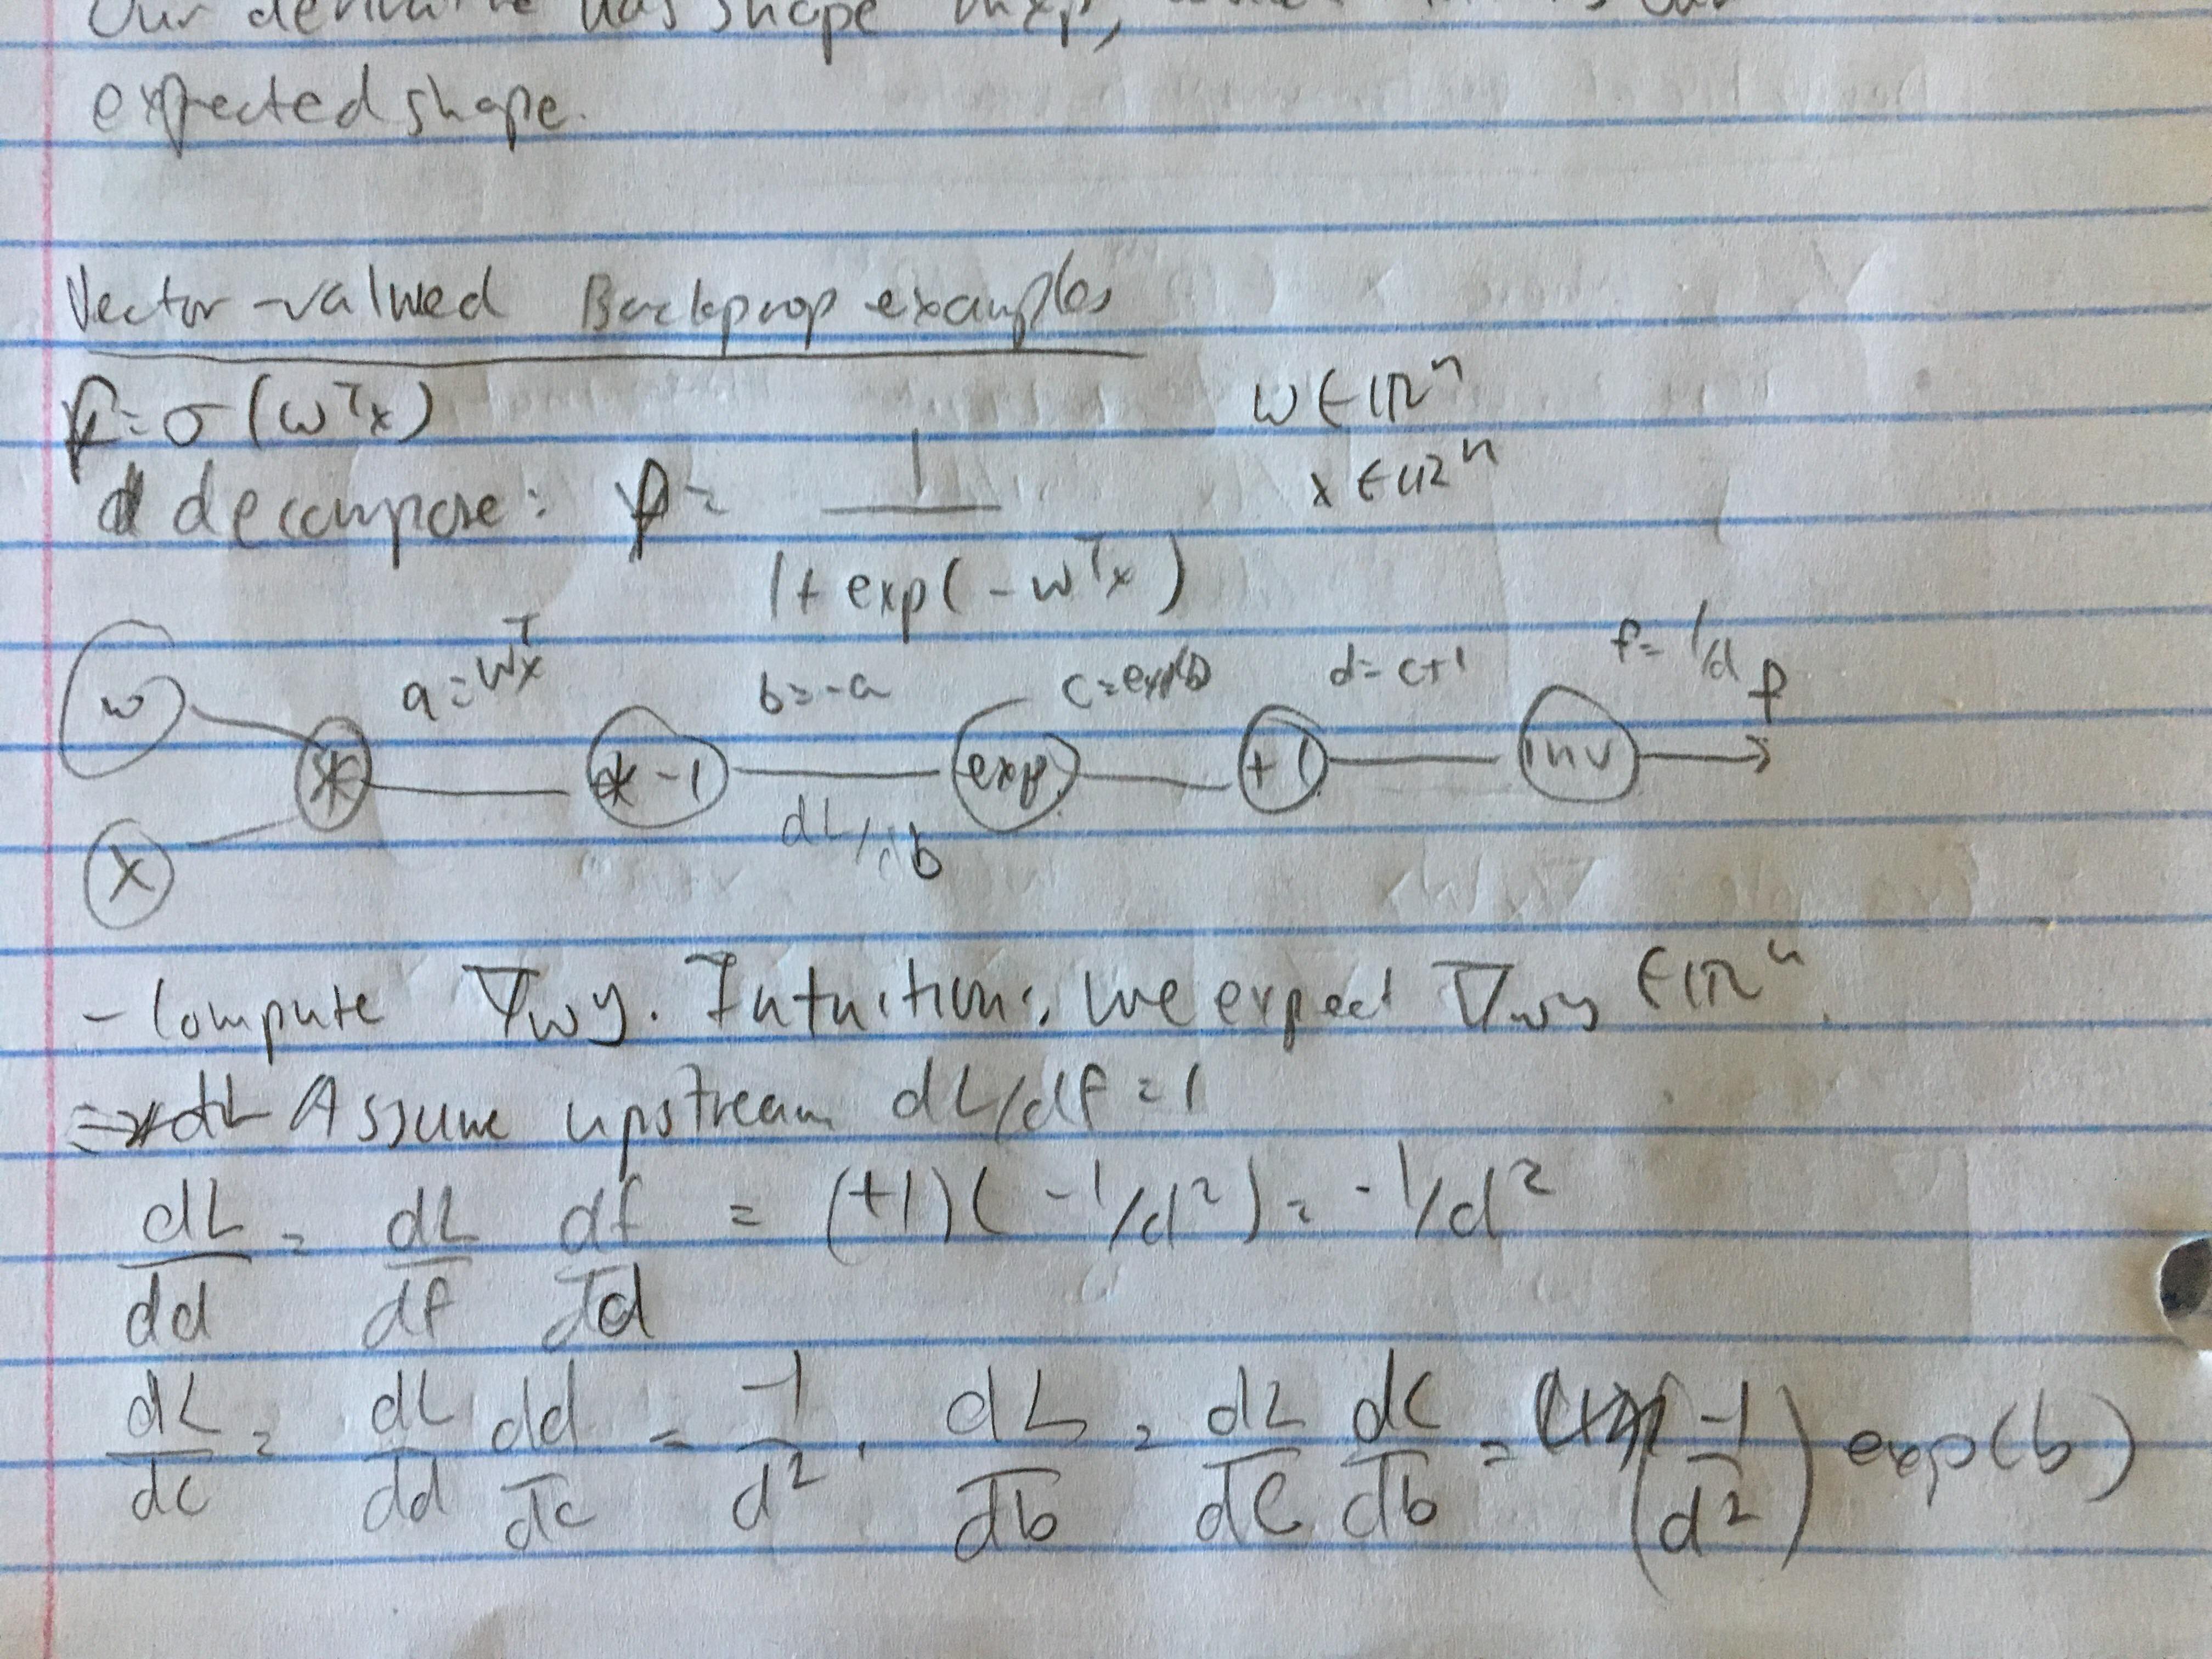 Our derivative has shape mxp,
expected shape.
Vector-valued Backprop examples
f = σ(wᵀx) w ∈ ℝⁿ
decompose: f = 1 / (1 + exp(-wᵀx)) x ∈ ℝⁿ
a = wᵀx b = -a c = exp(b) d = c+1 f = 1/d f
w * * -1 exp +1 inv
x dL/db
- Compute ∇wy. Intuition: we expect ∇wy ∈ ℝⁿ.
⇒ dL Assume upstream dL/df = 1
dL/dd = dL/df df/dd = (+1)(-1/d²) = -1/d²
dL/dc = dL/dd dd/dc = -1/d². dL/db = dL/dc dc/db = (-1/d²) exp(b)